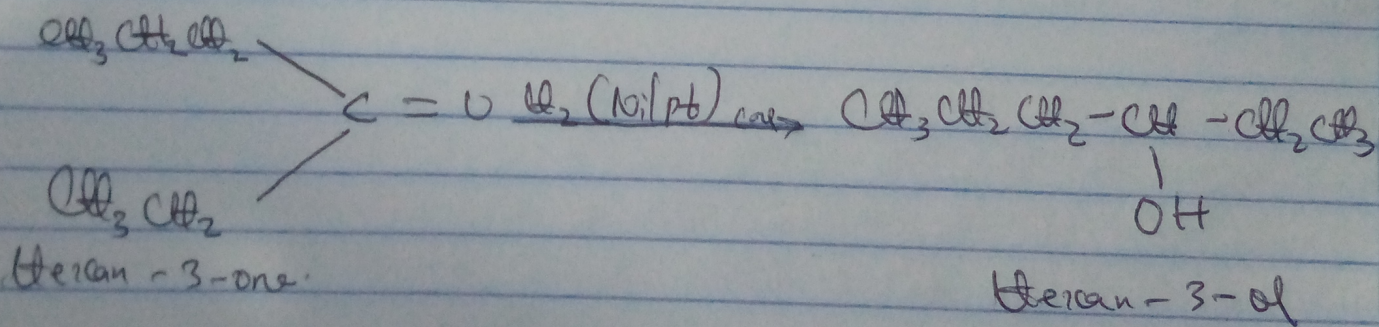 CH₃CH₂CH₂
C = O H₂(Ni/Pt) Cat→ CH₃CH₂CH₂-CH-CH₂CH₃
CH₃CH₂
OH
Hexan-3-one.
Hexan-3-ol